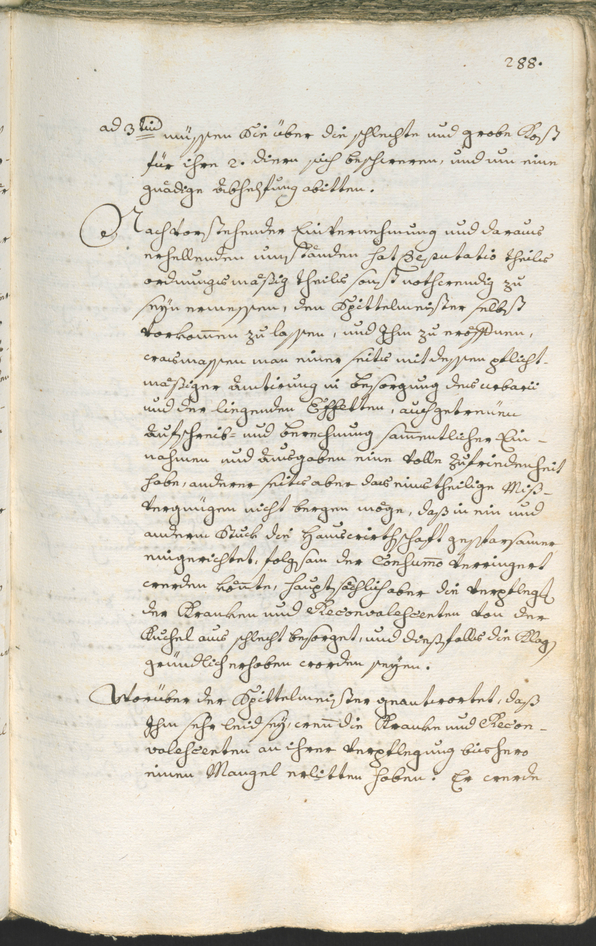 288.
ad 3tiō müssen Sie über die schlechte und grobe Kost
für ihre 2. diern sich beschweren, und um eine
gnädige abhelfung abitten.
Nach vorstehender Einvernehmung und daraus
erhellenden umständen hat Deputatio theils
ordnungsmäßig theils sonst nothwendig zu
seyn ermessen, den Spittelmeister selbst
vorkommen zu lassen, und Ihm zu eröffnen,
wasmassen man einer seits mit dessen pflicht-
mäßiger amtirung in besorgung des urbarii
und der liegenden Effetten, auch getreuen
aufschreib- und berechnung samentlicher Ein-
nahmen und ausgaben eine volle zufriedenheit
habe, anderer seits aber das einstheilige Miß-
vergnügen nicht bergen möge, daß in ein und
andern Stuck die Hauswirthschaft gesparsamer
eingerichtet, folgsam der Consummo verringert
werden könnte, hauptsächlich aber die verpfleg
der Kranken und Reconvalescenten von der
Kuchel aus schlecht besorget, und dießfalls die Klag
gründlich erhoben worden seyen.
Worüber der Spittelmeister geantwortet, daß
Ihm sehr leid sey, wenn die Kranke und Recon-
valescenten an ihrer verpflegung bishero
einen Mangel erlitten haben. Er werde